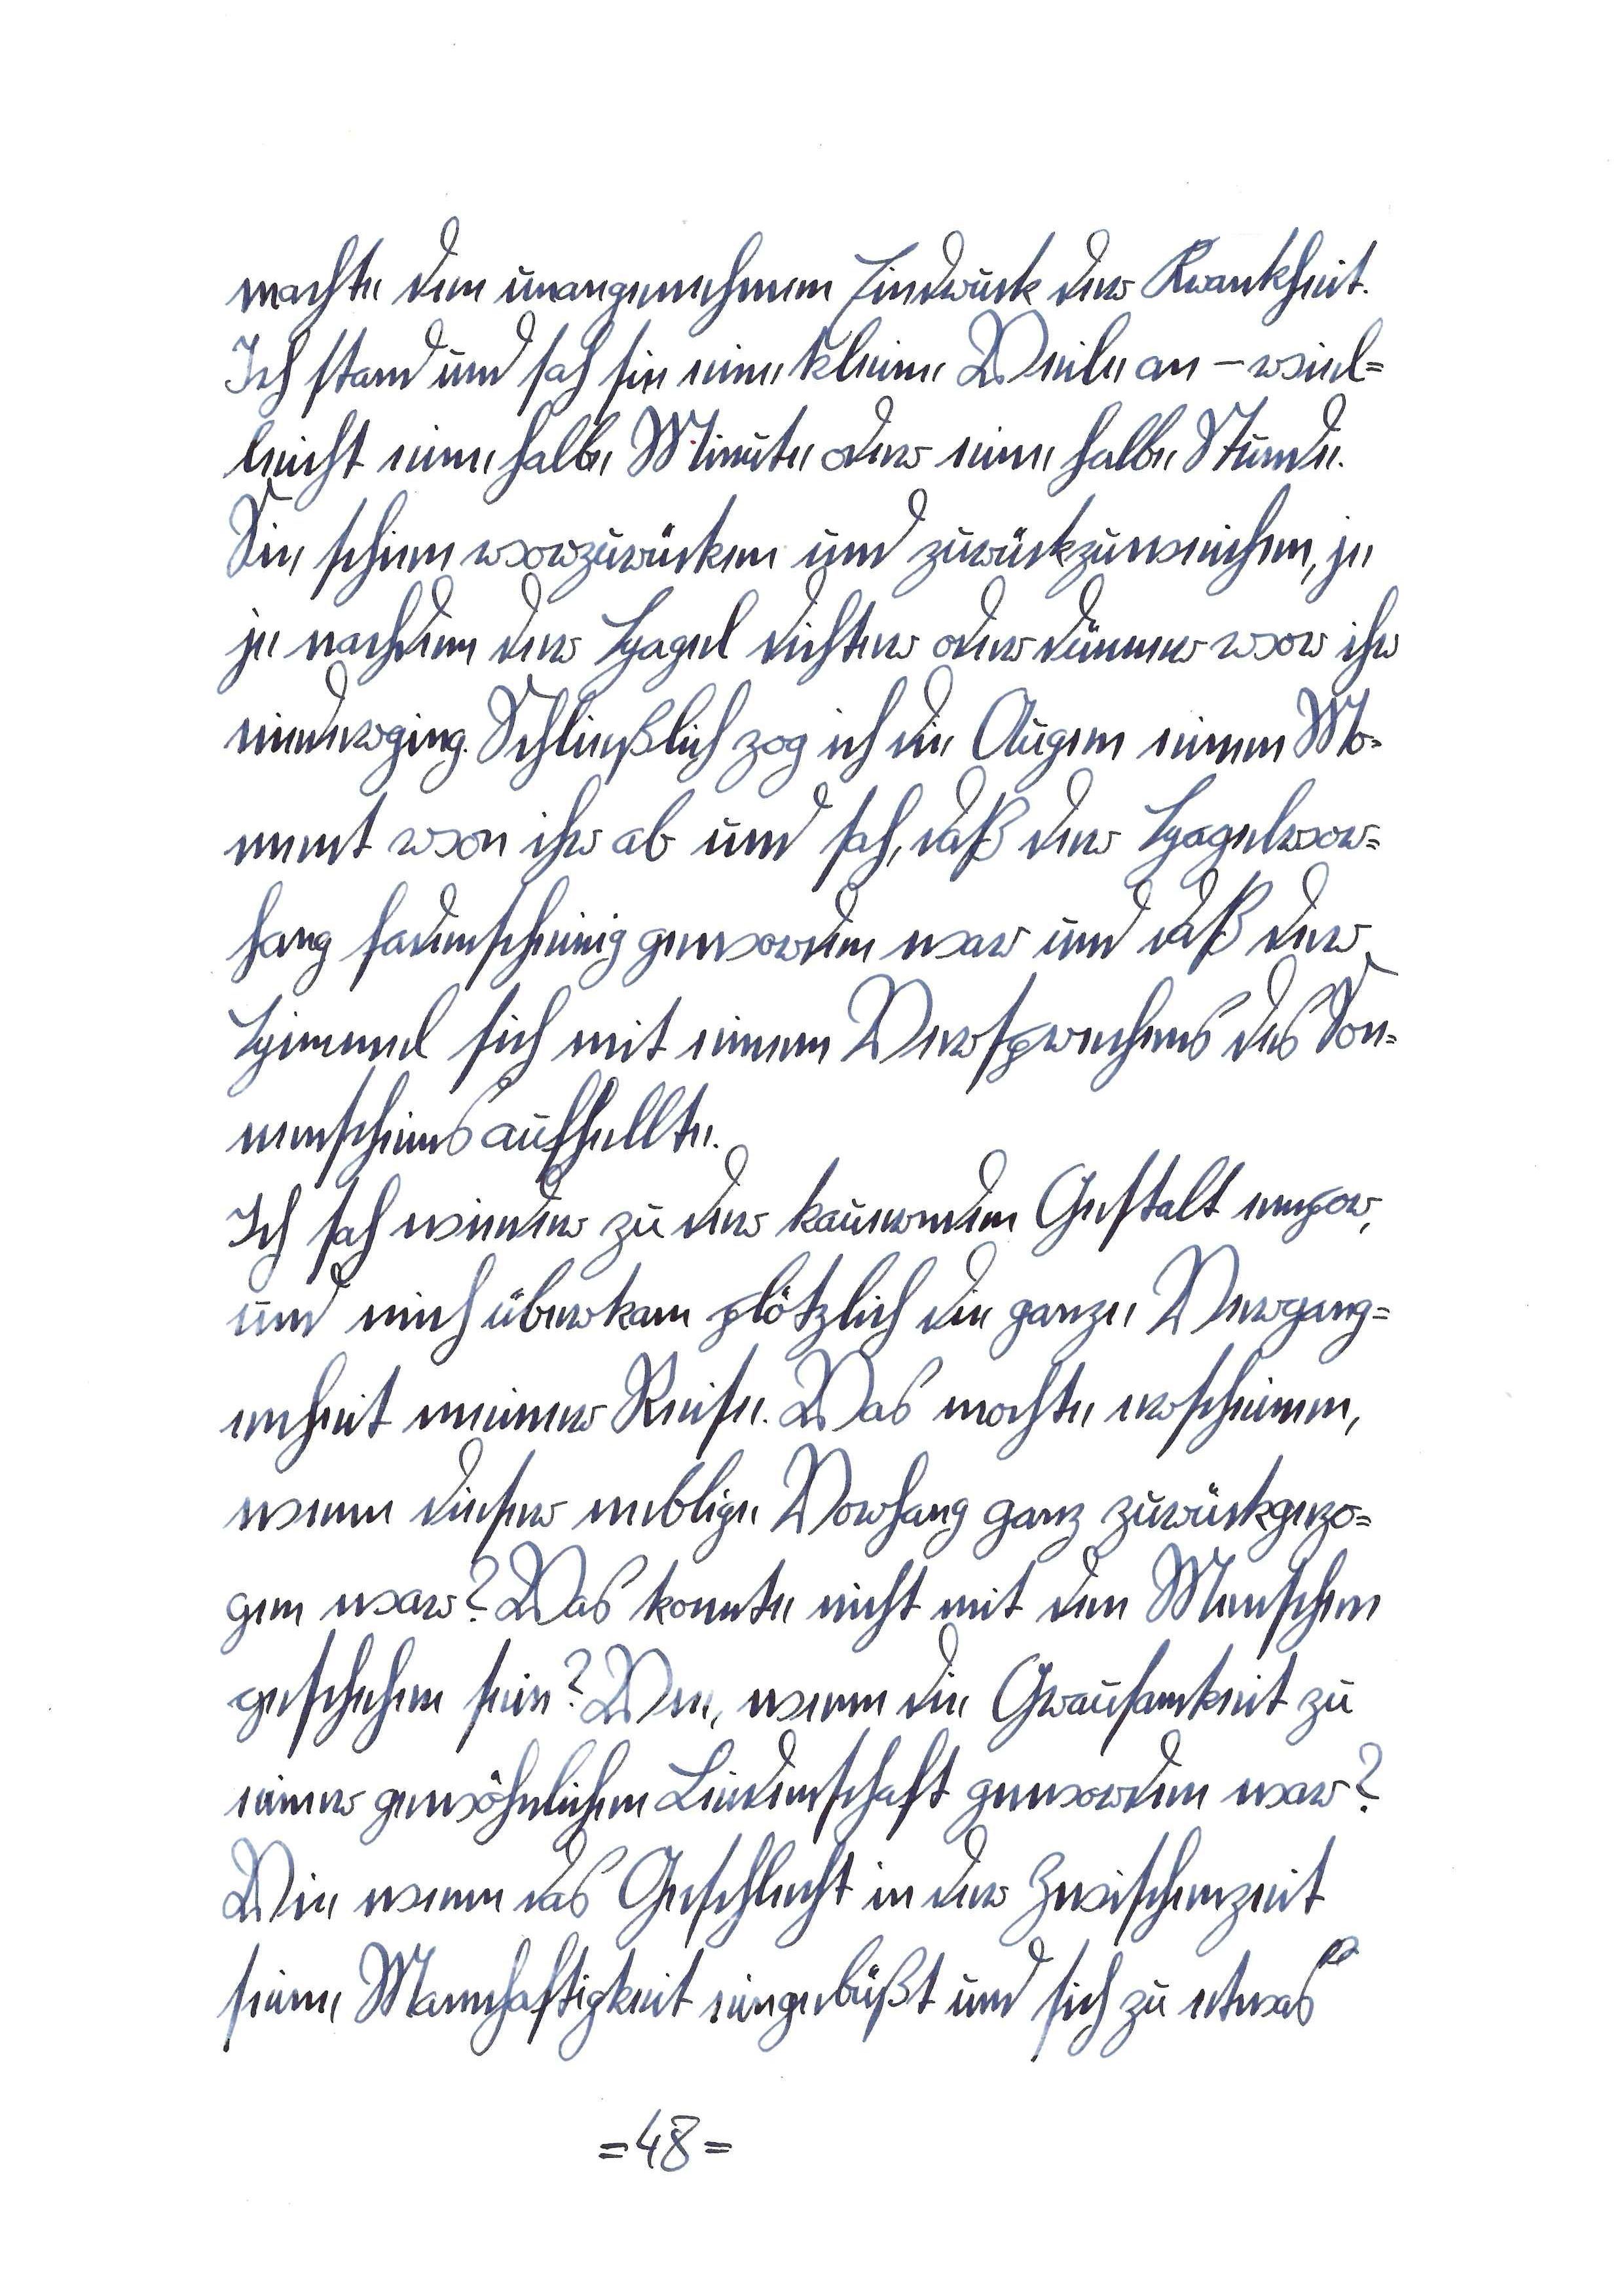 machte den unangenehmen Eindruck der Krankheit.
Ich stand und sah sie eine kleine Weile an – viel=
leicht eine halbe Minute oder eine halbe Stunde.
Sie schien vorzurücken und zurückzuweichen, je
je nachdem der Hagel dichter oder dünner vor ihr
niederging. Schließlich zog ich die Augen einen Mo=
ment von ihr ab und sah, daß der Hagelvor=
hang fadenscheinig geworden war und daß der
Himmel sich mit einem Versprechens des Son=
nenscheins aufhellte.
Ich sah wieder zu der kauernden Gestalt empor,
und mich überkam plötzlich die ganze Vergang=
enheit meiner Reise. Was mochte erscheinen,
wenn dieser neblige Vorhang ganz zurückgezo=
gen war? Was konnte nicht mit den Menschen
geschehen sein? Wie, wenn die Grausamkeit zu
einer gewöhnlichen Leidenschaft geworden war?
Wie wenn das Geschlecht in der Zwischenzeit
seine Mannhaftigkeit eingebüßt und sich zu etwas
=48=